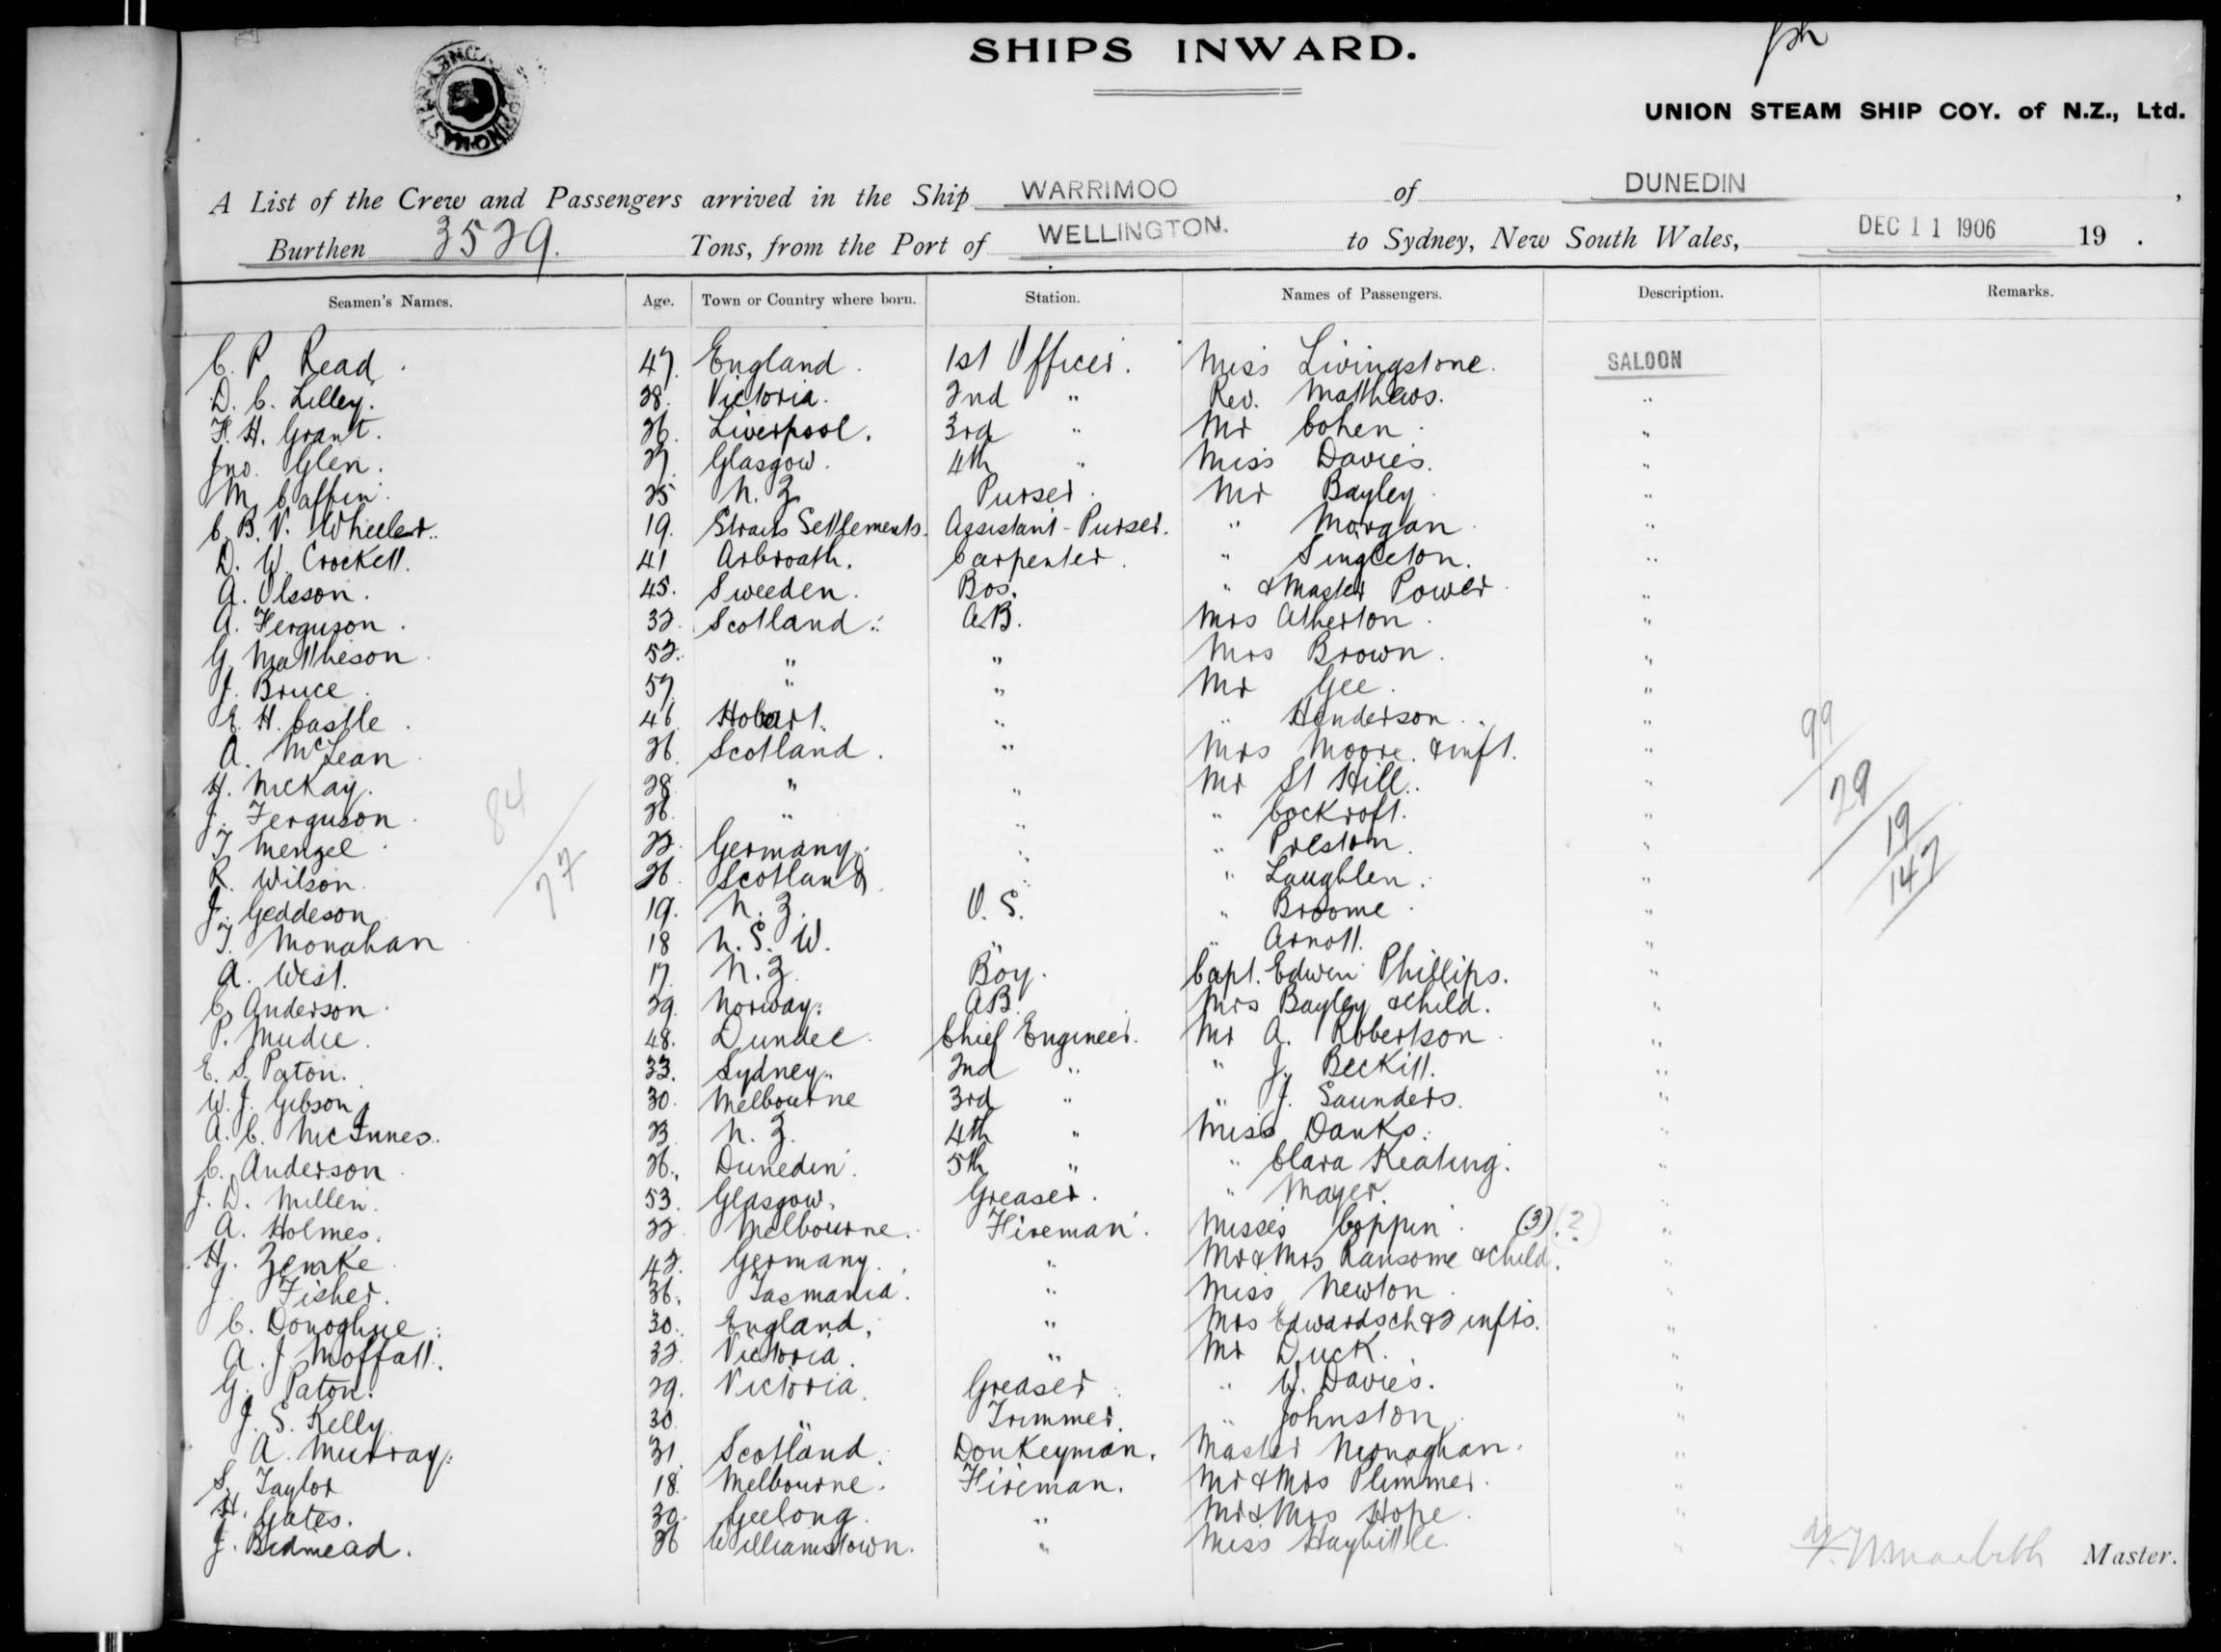 SHIPS INWARD.
UNION STEAM SHIP COY. of N.Z., Ltd.
A List of the Crew and Passengers arrived in the Ship WARRIMOO of DUNEDIN,
Burthen 3529. Tons, from the Port of WELLINGTON. to Sydney, New South Wales, DEC 11 1906 19 .
Seamen's Names. Age. Town or Country where born. Station. Names of Passengers. Description. Remarks.
C. P. Read. 47. England. 1st Officer. Miss Livingstone. SALOON
D. C. Lilley. 28. Victoria. 2nd " Rev. Mathews. "
F. H. Grant. 26. Liverpool. 3rd " Mr Cohen. "
Jno. Glen. 27. Glasgow. 4th " Miss Davies. "
M. Caffin. 25 N. Z. Purser. Mr Bayley. "
C. B. V. Wheeler. 19. Straits Settlements. Assistant-Purser. " Morgan. "
D. W. Crockett. 41 Arbroath. Carpenter. " Singleton. "
A. Olsson. 45. Sweeden. Bos. " & Master Power. "
A. Ferguson. 32. Scotland. A.B. Mrs Atherton. "
G. Matheson. 52. " " Mrs Brown. "
J. Bruce. 57. " " Mr Gee. "
E. H. Castle. 46. Hobart. " " Henderson. "
A. McLean. 26. Scotland. " Mrs Moore. & inft. "
H. McKay. 28. " " Mr St Hill. "
J. Ferguson. 26. " " " Cockroft. "
T. Mengel. 22. Germany. " " Preston. "
R. Wilson. 26. Scotland. " " Laughlen. "
J. Geddeson 19. N. Z. O. S. " Broome. "
T. Monahan 18 N. S. W. " " Arnott. "
A. West. 17. N. Z. Boy. Capt. Edwin Phillips. "
C. Anderson. 29. Norway. AB. Mrs Bayley & child. "
P. Mudie. 48. Dundee. Chief Engineer. Mr A. Robertson. "
E. S. Paton. 33. Sydney. 2nd " " J. Beckitt. "
W. J. Gibson. 30. Melbourne 3rd " " J. Saunders. "
A. C. McInnes. 23. N. Z. 4th " Miss Danks. "
C. Anderson. 26. Dunedin. 5th " " Clara Keating. "
J. D. Millen. 53. Glasgow. Greaser. " Mayer. "
A. Holmes. 22. Melbourne. Fireman. Misses Coppin. (3) (?) "
H. Zemke. 42. Germany. " Mr & Mrs Ransome & child. "
J. Fisher. 36. Tasmania. " Miss Newton. "
C. Donoghue. 30. England. " Mrs Edwards ch & 2 infts. "
A. J. Moffatt. 32. Victoria. " Mr Duck. "
G. Paton. 29. Victoria. Greaser. " W. Davies. "
J. S. Kelly. 30. " Trimmer. " Johnston. "
A. Murray. 31. Scotland. Donkeyman. Master Monaghan. "
S. Taylor 18. Melbourne. Fireman. Mr & Mrs Plimmer. "
H. Gates. 30. Geelong. " Mr & Mrs Hope. "
J. Bidmead. 26 Williamstown. " Miss Haybittle. "
84
77
99
29
19
147
Master.